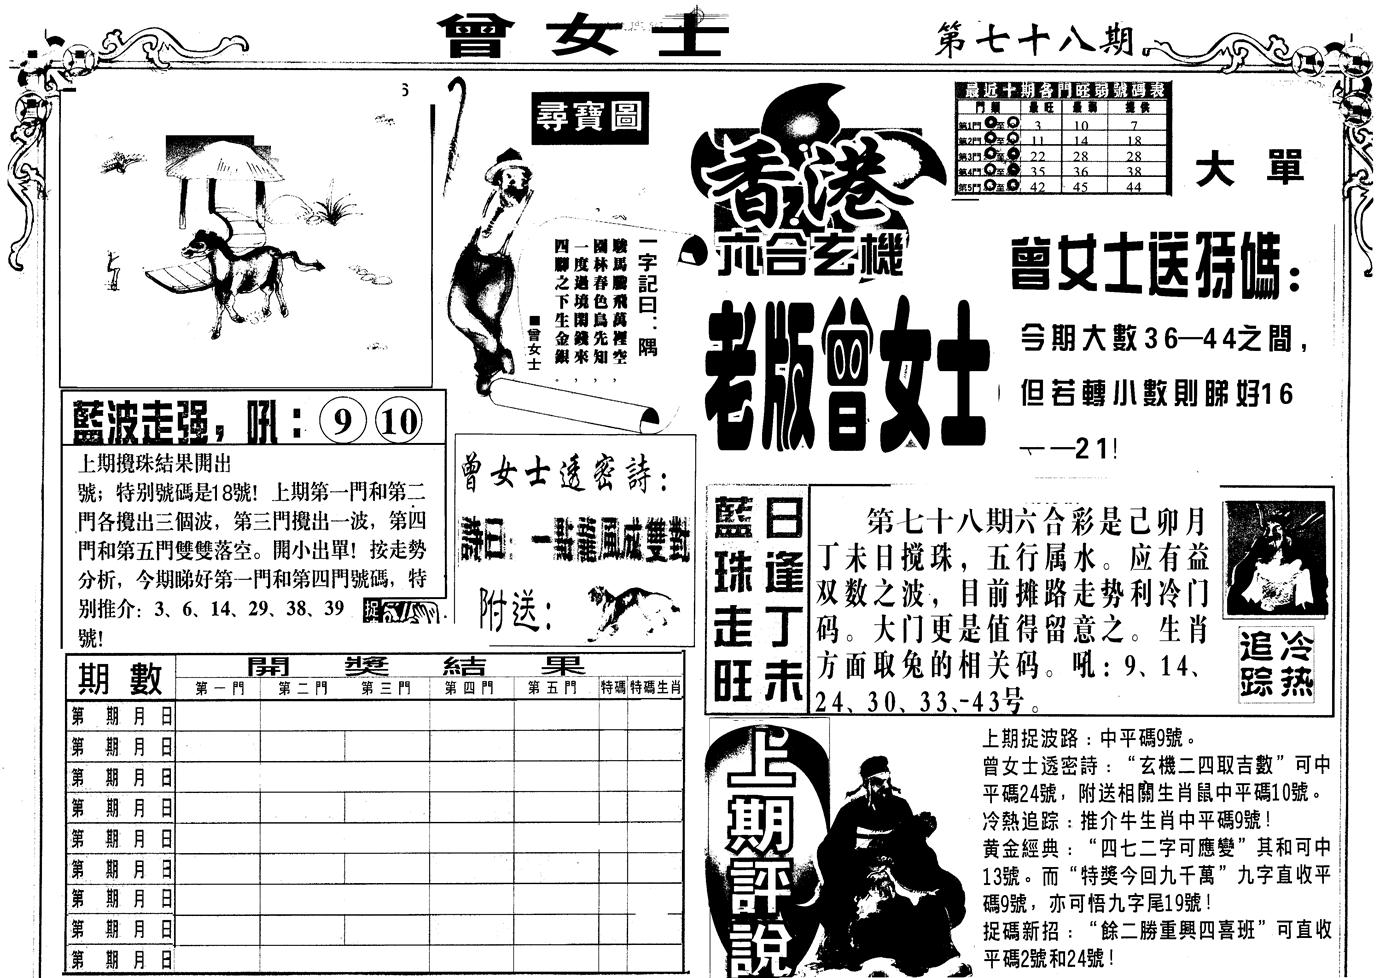 曾女士
第七十八期
尋寶圖
一字記曰：隅
駿馬騰飛萬裡空，
園林春色鳥先知，
一度過境閑錢來，
四腳之下生金銀。
■曾女士
香港
六合玄機
老版曾女士
最近十期各門旺弱號碼表
門類 最旺 最弱 提供
第1門 至 3 10 7
第2門 至 11 14 18
第3門 至 22 28 28
第4門 至 35 36 38
第5門 至 42 45 44
大單
曾女士送特碼：
今期大數36—44之間，
但若轉小數則睇好16
——21！
藍波走强，吼：9 10
上期攪珠結果開出
號；特别號碼是18號！上期第一門和第二
門各攪出三個波，第三門攪出一波，第四
門和第五門雙雙落空。開小出單！按走勢
分析，今期睇好第一門和第四門號碼，特
别推介：3、6、14、29、38、39
號！
曾女士透密詩：
詩曰：一對龍鳳成雙對
附送：
藍珠走旺
日逢丁未
第七十八期六合彩是己卯月
丁未日搅珠，五行属水。应有益
双数之波，目前摊路走勢利冷门
码。大门更是值得留意之。生肖
方面取兔的相关码。吼：9、14、
24、30、33、43号。
追踪
冷热
期數 開獎結果
第一門 第二門 第三門 第四門 第五門 特碼 特碼生肖
第 期 月 日
第 期 月 日
第 期 月 日
第 期 月 日
第 期 月 日
第 期 月 日
第 期 月 日
第 期 月 日
第 期 月 日
上期評說
上期捉波路：中平碼9號。
曾女士透密詩：“玄機二四取吉數”可中
平碼24號，附送相關生肖鼠中平碼10號。
冷熱追踪：推介牛生肖中平碼9號！
黄金經典：“四七二字可應變”其和可中
13號。而“特獎今回九千萬”九字直收平
碼9號，亦可悟九字尾19號！
捉碼新招：“餘二勝重興四喜班”可直收
平碼2號和24號！